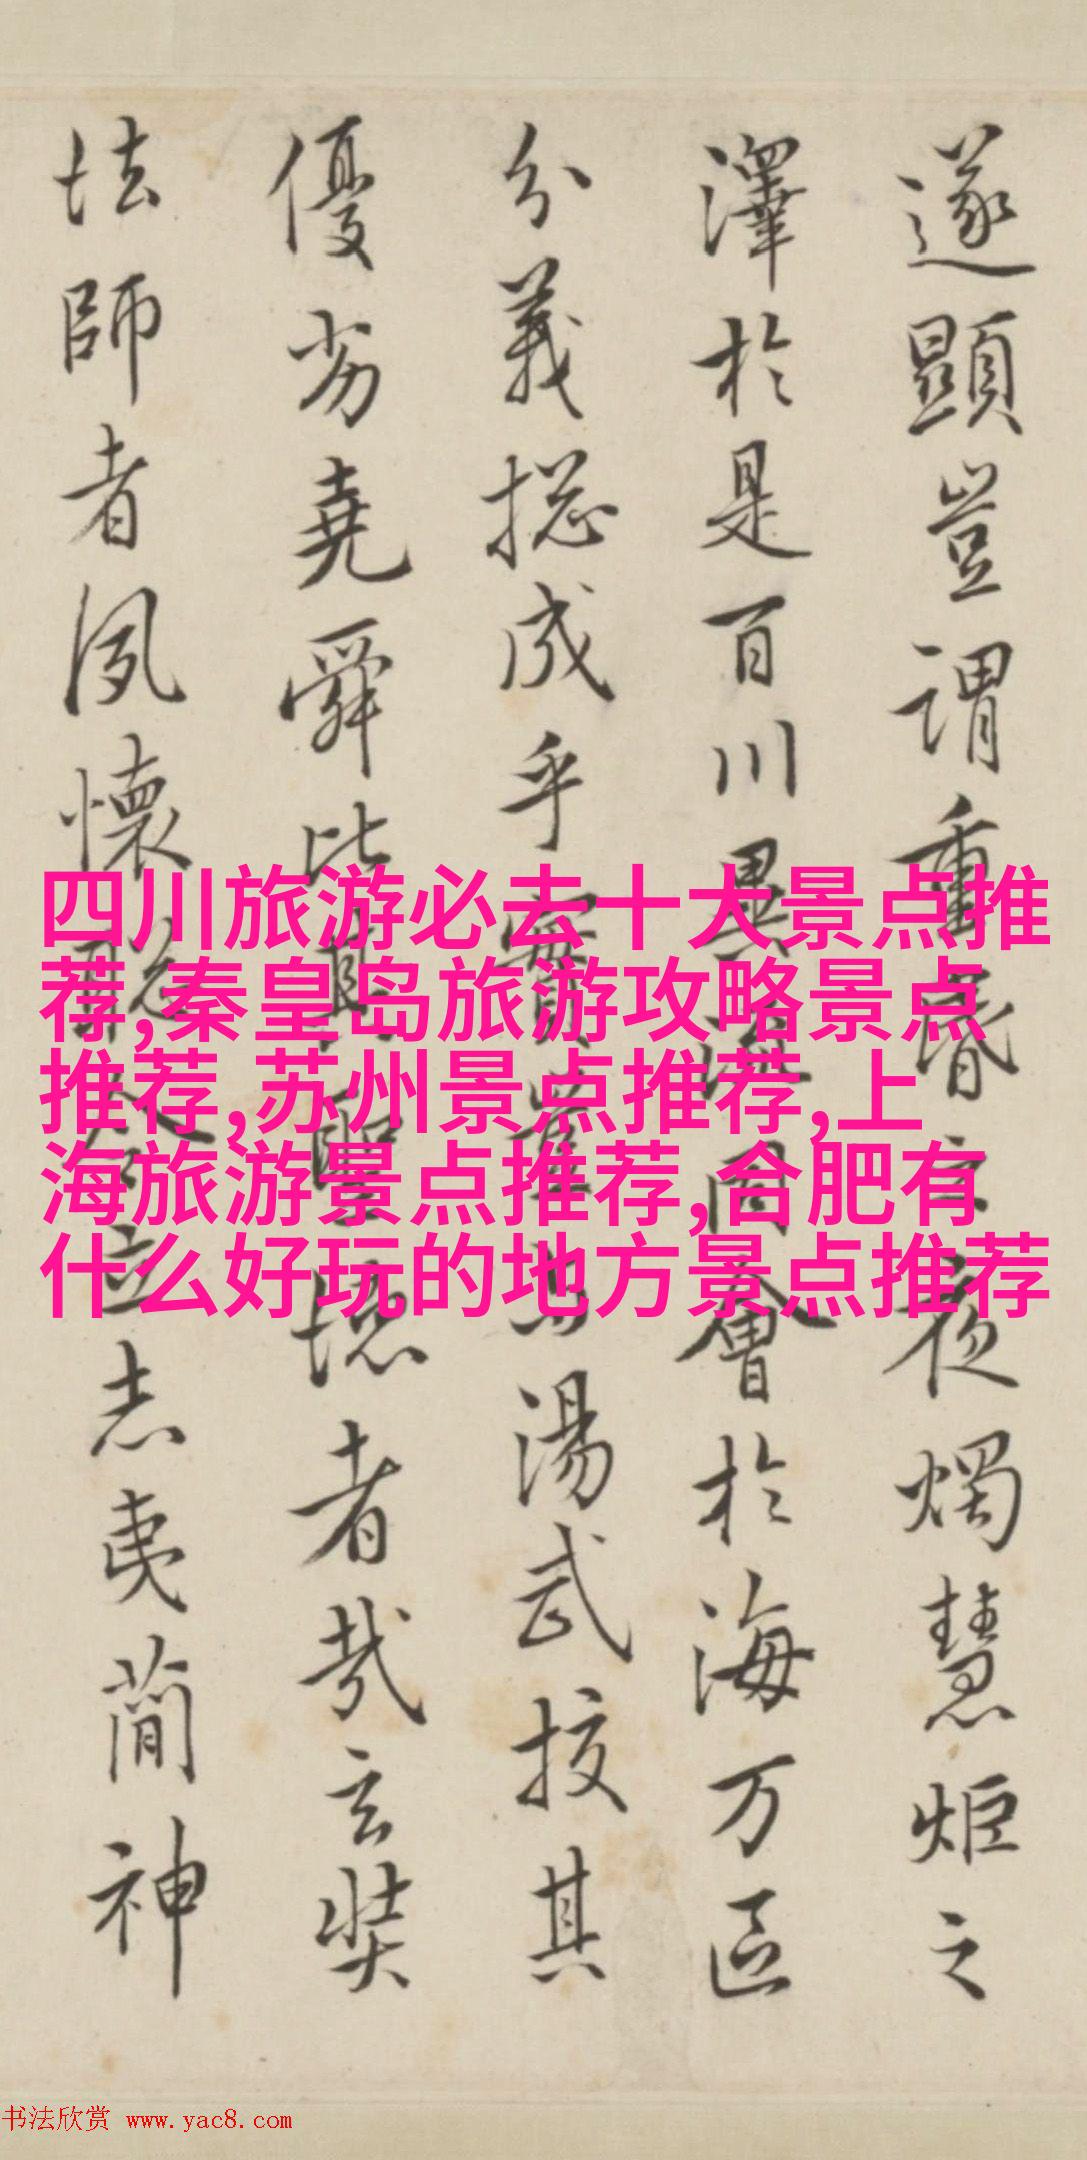 遂顯豈謂重昏之夜燭慧炬之
澤於是百川異流同會於海万區
分義揔成乎實豈与湯武挍其
優劣堯舜比其聖德者哉玄奘
法師者夙懷聦令立志夷簡神
四川旅游必去十大景点推
荐,秦皇岛旅游攻略景点
推荐,苏州景点推荐,上
海旅游景点推荐,合肥有
什么好玩的地方景点推荐
书法欣赏 www.yac8.com